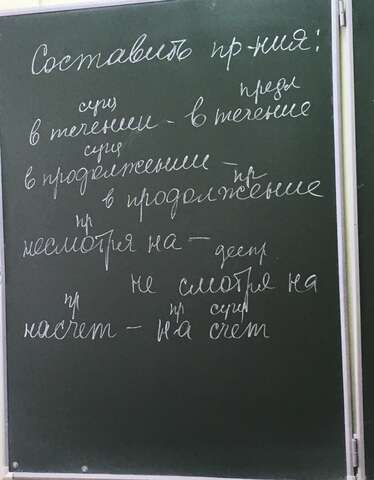 Составить пр-ния:
сущ предл
в течении - в течение
сущ
в продолжении -
пр
в продолжение
пр
несмотря на -
деепр
не смотря на
пр пр сущ
насчет - на счет